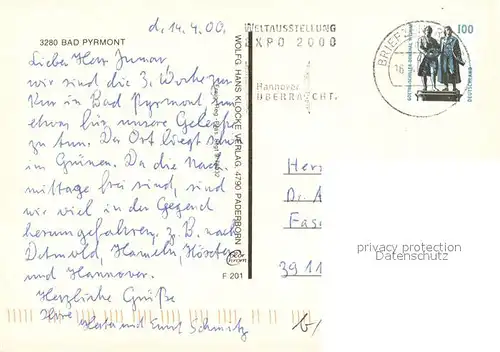 d. 14.4.00.
3280 BAD PYRMONT
Lieber Herr
wir sind die 3. Woche zur
Kur in Bad Pyrmont, um
etwas für unsere Gelenke
zu tun. Der Ort liegt schön
im Grünen. Da die Nach-
mittage frei sind, sind
wir viel in der Gegend
herumgefahren, z.B. nach
Detmold, Hameln, Höxter
und Hannover.
Herzliche Grüße
Ihre
Herta und Ernst Schmitz
WOLFG. HANS KLOCKE VERLAG, 4790 PADERBORN
F 201
WELTAUSSTELLUNG
EXPO 2000
Hannover
ÜBERRASCHT.
BRIEFZ
16
100
GOETHE-SCHILLER-DENKMAL WEIMAR
DEUTSCHLAND
Herr
Dr. A
Fas
3911
privacy protection
Datenschutz